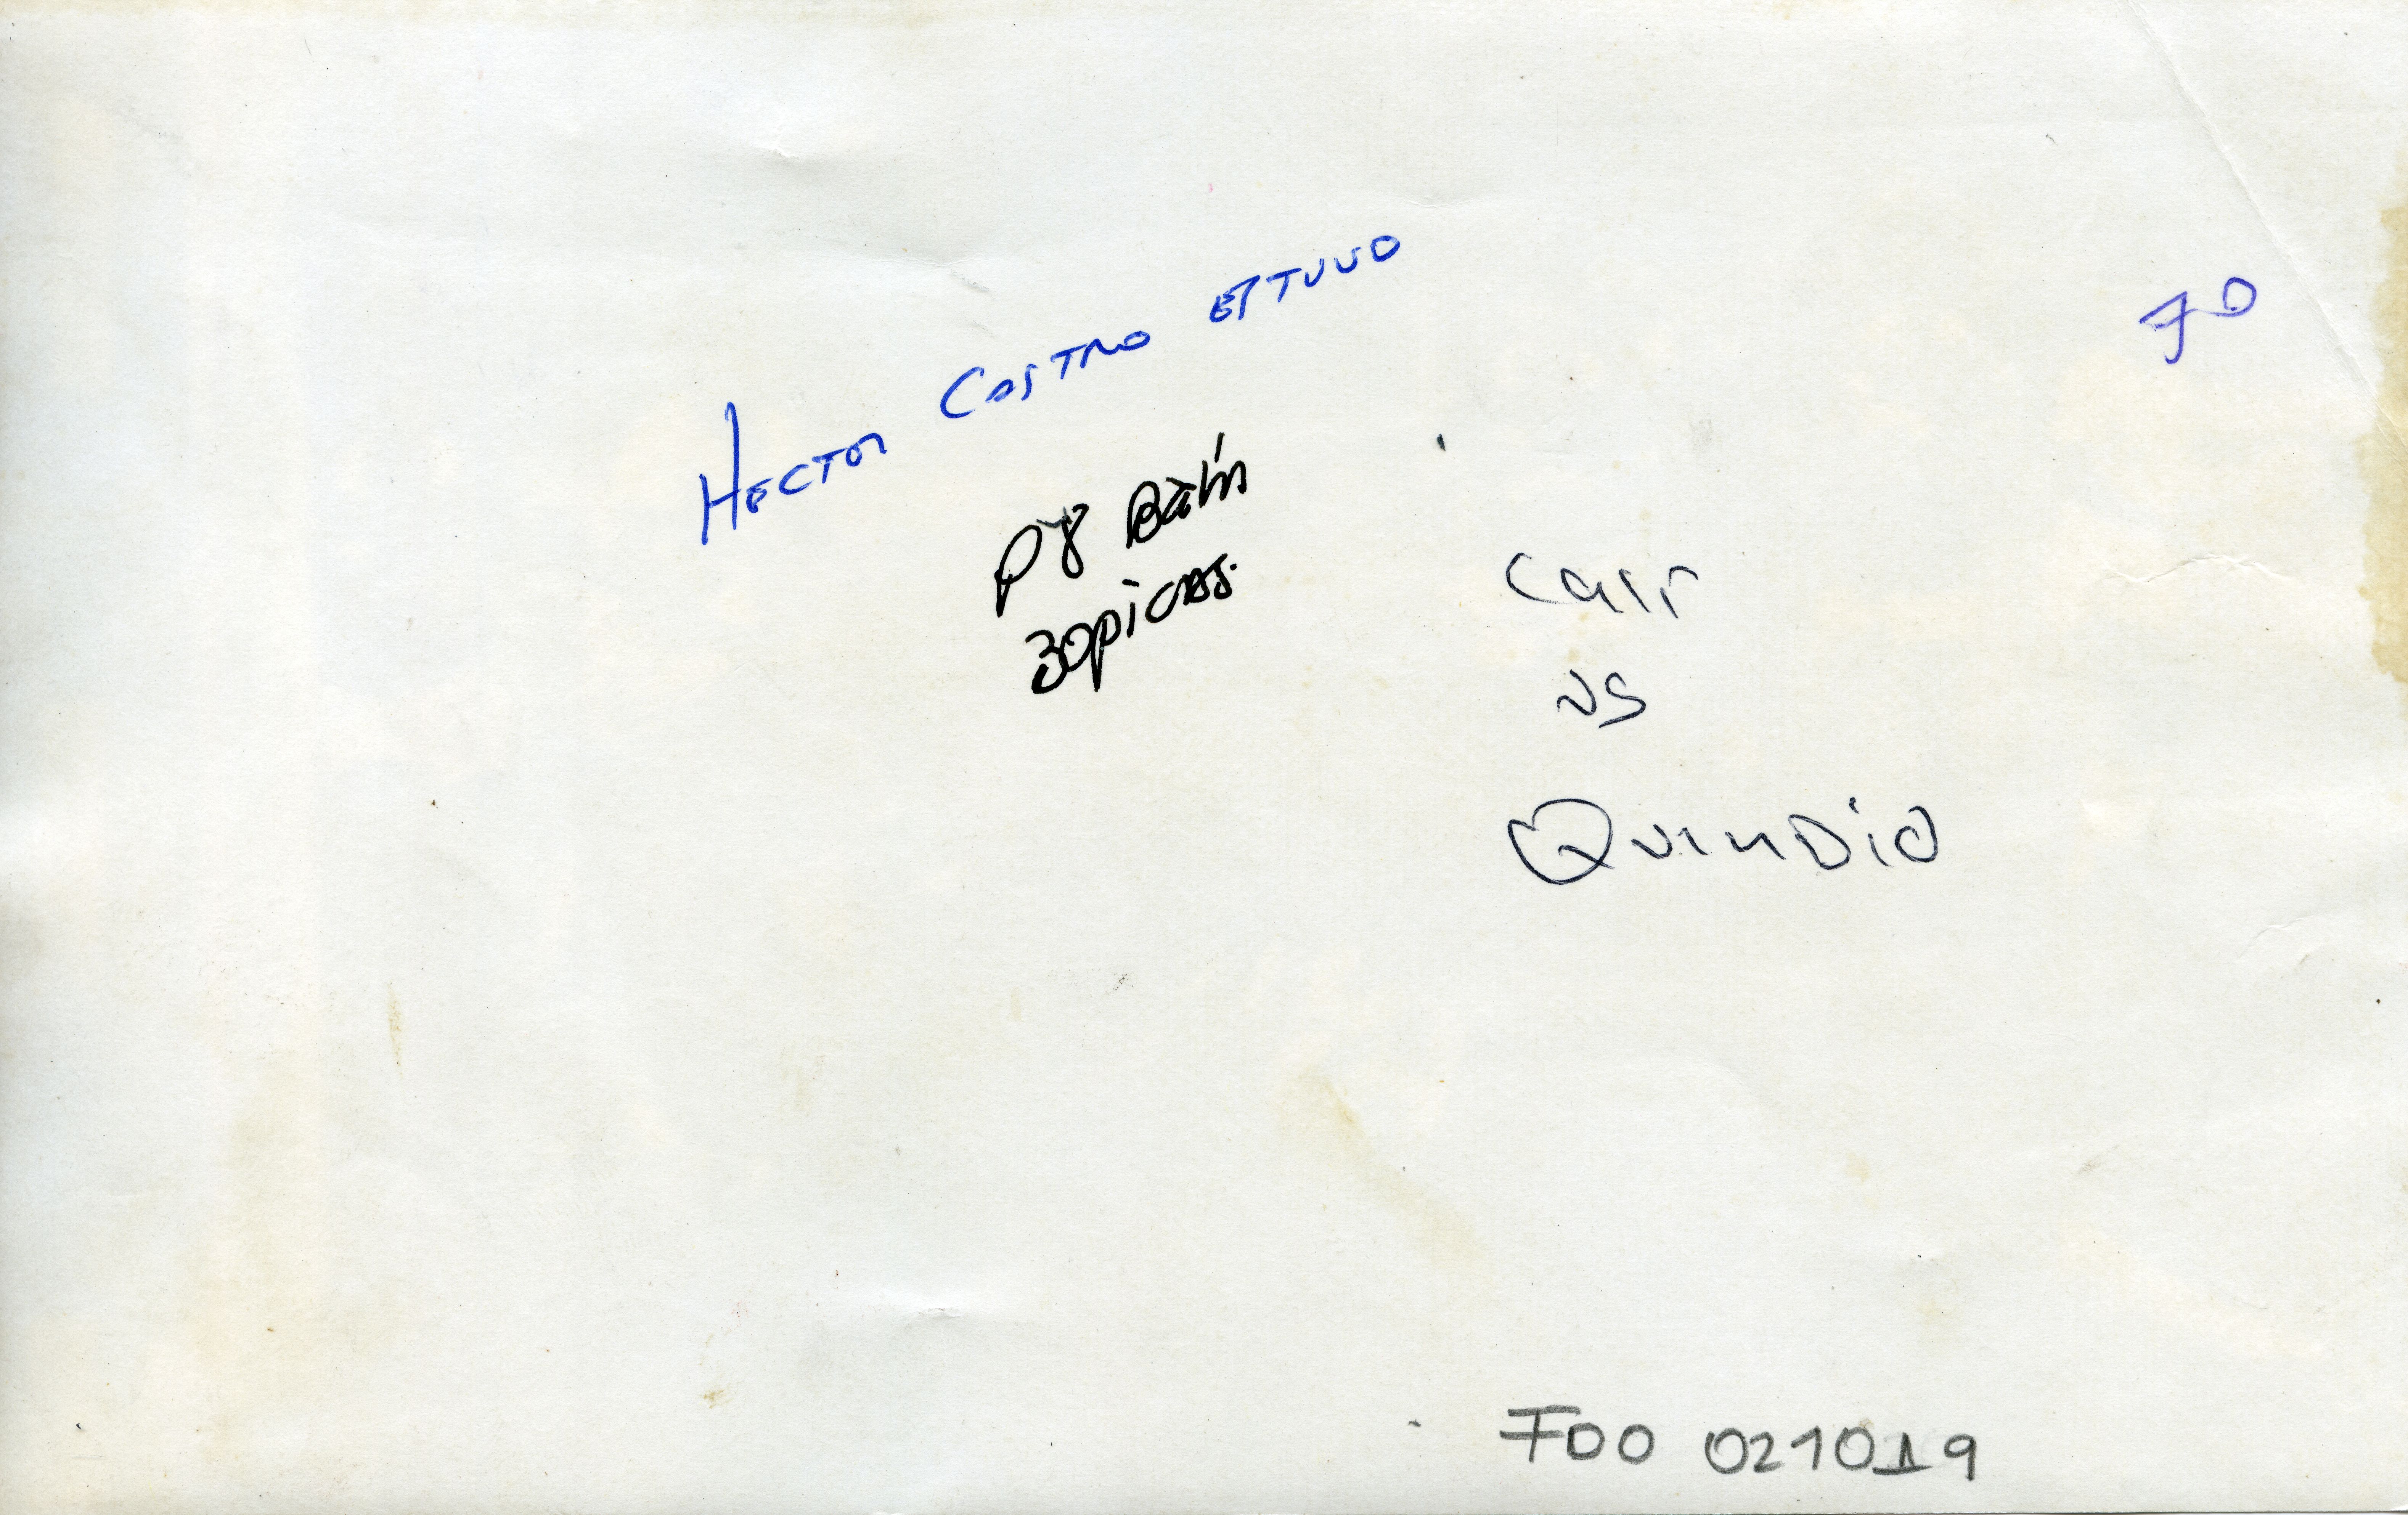 HECTOR CASTRO ESTUVO
70
P8 Batín
30picas.
Cali
vs
QUINDIO
FDO 021019